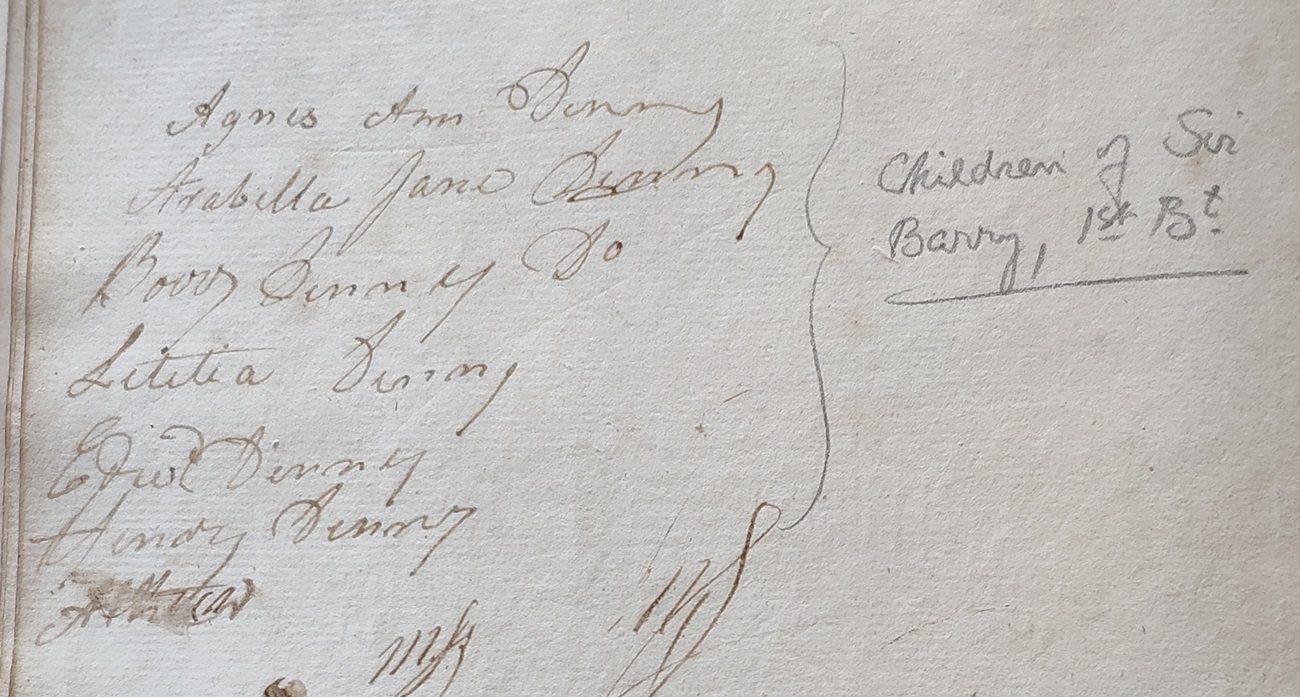 Agnes Ann Denny
Arabilla Jane Denny
Barry Denny Do
Letitia Denny
Edwd Denny
Henry Denny
Children of Sir
Barry, 1st Bt